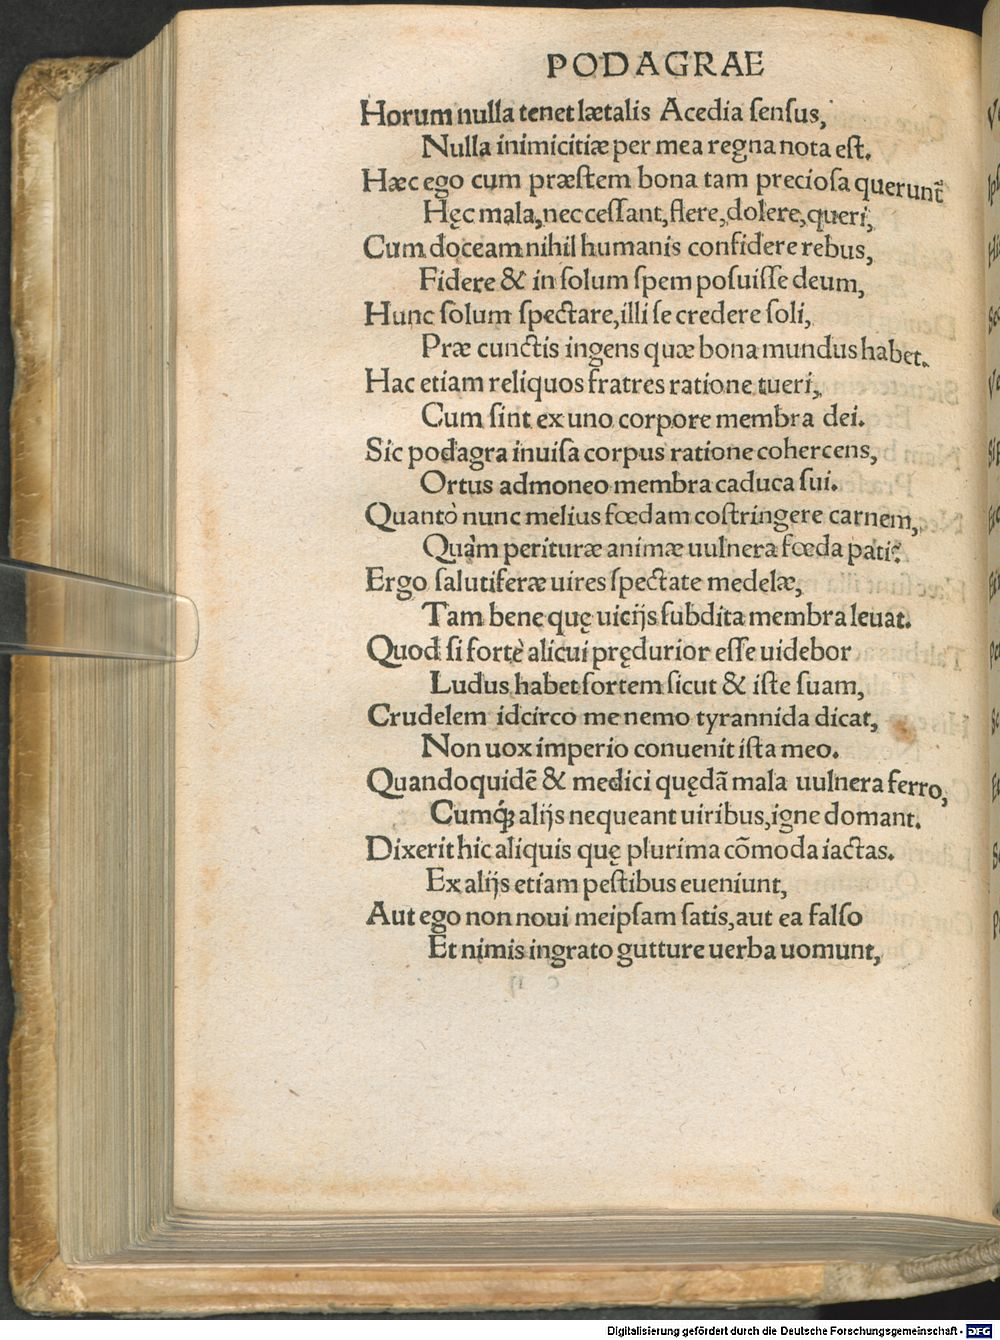 PODAGRAE
Horum nulla tenet lætalis Acedia sensus,
Nulla inimicitiæ per mea regna nota est.
Hæc ego cum præstem bona tam preciosa querunt᷑
Hęc mala, nec cessant, flere, dolere, queri,
Cum doceam nihil humanis confidere rebus,
Fidere & in solum spem posuisse deum,
Hunc solum spectare, illi se credere soli,
Præ cunctis ingens quæ bona mundus habet.
Hac etiam reliquos fratres ratione tueri,
Cum sint ex uno corpore membra dei.
Sic podagra inuisa corpus ratione cohercens,
Ortus admoneo membra caduca sui.
Quantò nunc melius fœdam cõstringere carnem,
Quàm perituræ animæ uulnera fœda pati?
Ergo salutiferæ uires spectate medelæ,
Tam bene quę uicijs subdita membra leuat.
Quod si fortè alicui prędurior esse uidebor
Ludus habet sortem sicut & iste suam,
Crudelem idcirco me nemo tyrannida dicat,
Non uox imperio conuenit ista meo.
Quandoquidẽ & medici quędã mala uulnera ferro,
Cumq́; alijs nequeant uiribus, igne domant.
Dixerit hic aliquis quę plurima cõmoda iactas.
Ex alijs etiam pestibus eueniunt,
Aut ego non noui meipsam satis, aut ea falso
Et nimis ingrato gutture uerba uomunt,
Digitalisierung gefördert durch die Deutsche Forschungsgemeinschaft - DFG